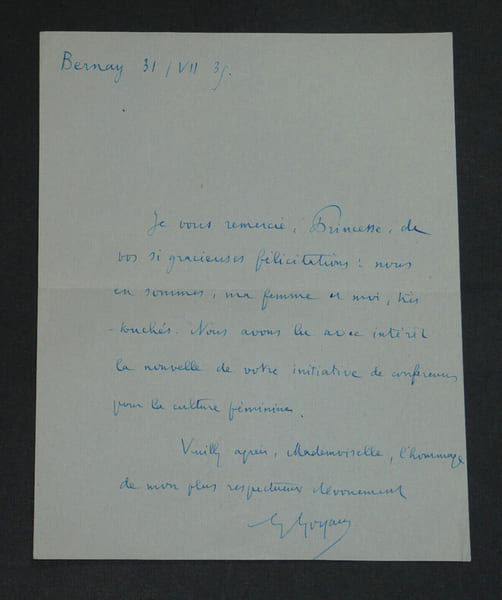 Bernay 31 / VII 35.
Je vous remercie, Princesse, de
vos si gracieuses félicitations : nous
en sommes, ma femme et moi, très
touchés. Nous avons lu avec intérêt
la nouvelle de votre initiative de conférences
pour la culture féminine.
Veuillez agréer, Mademoiselle, l'hommage
de mon plus respectueux dévouement
G Goyau